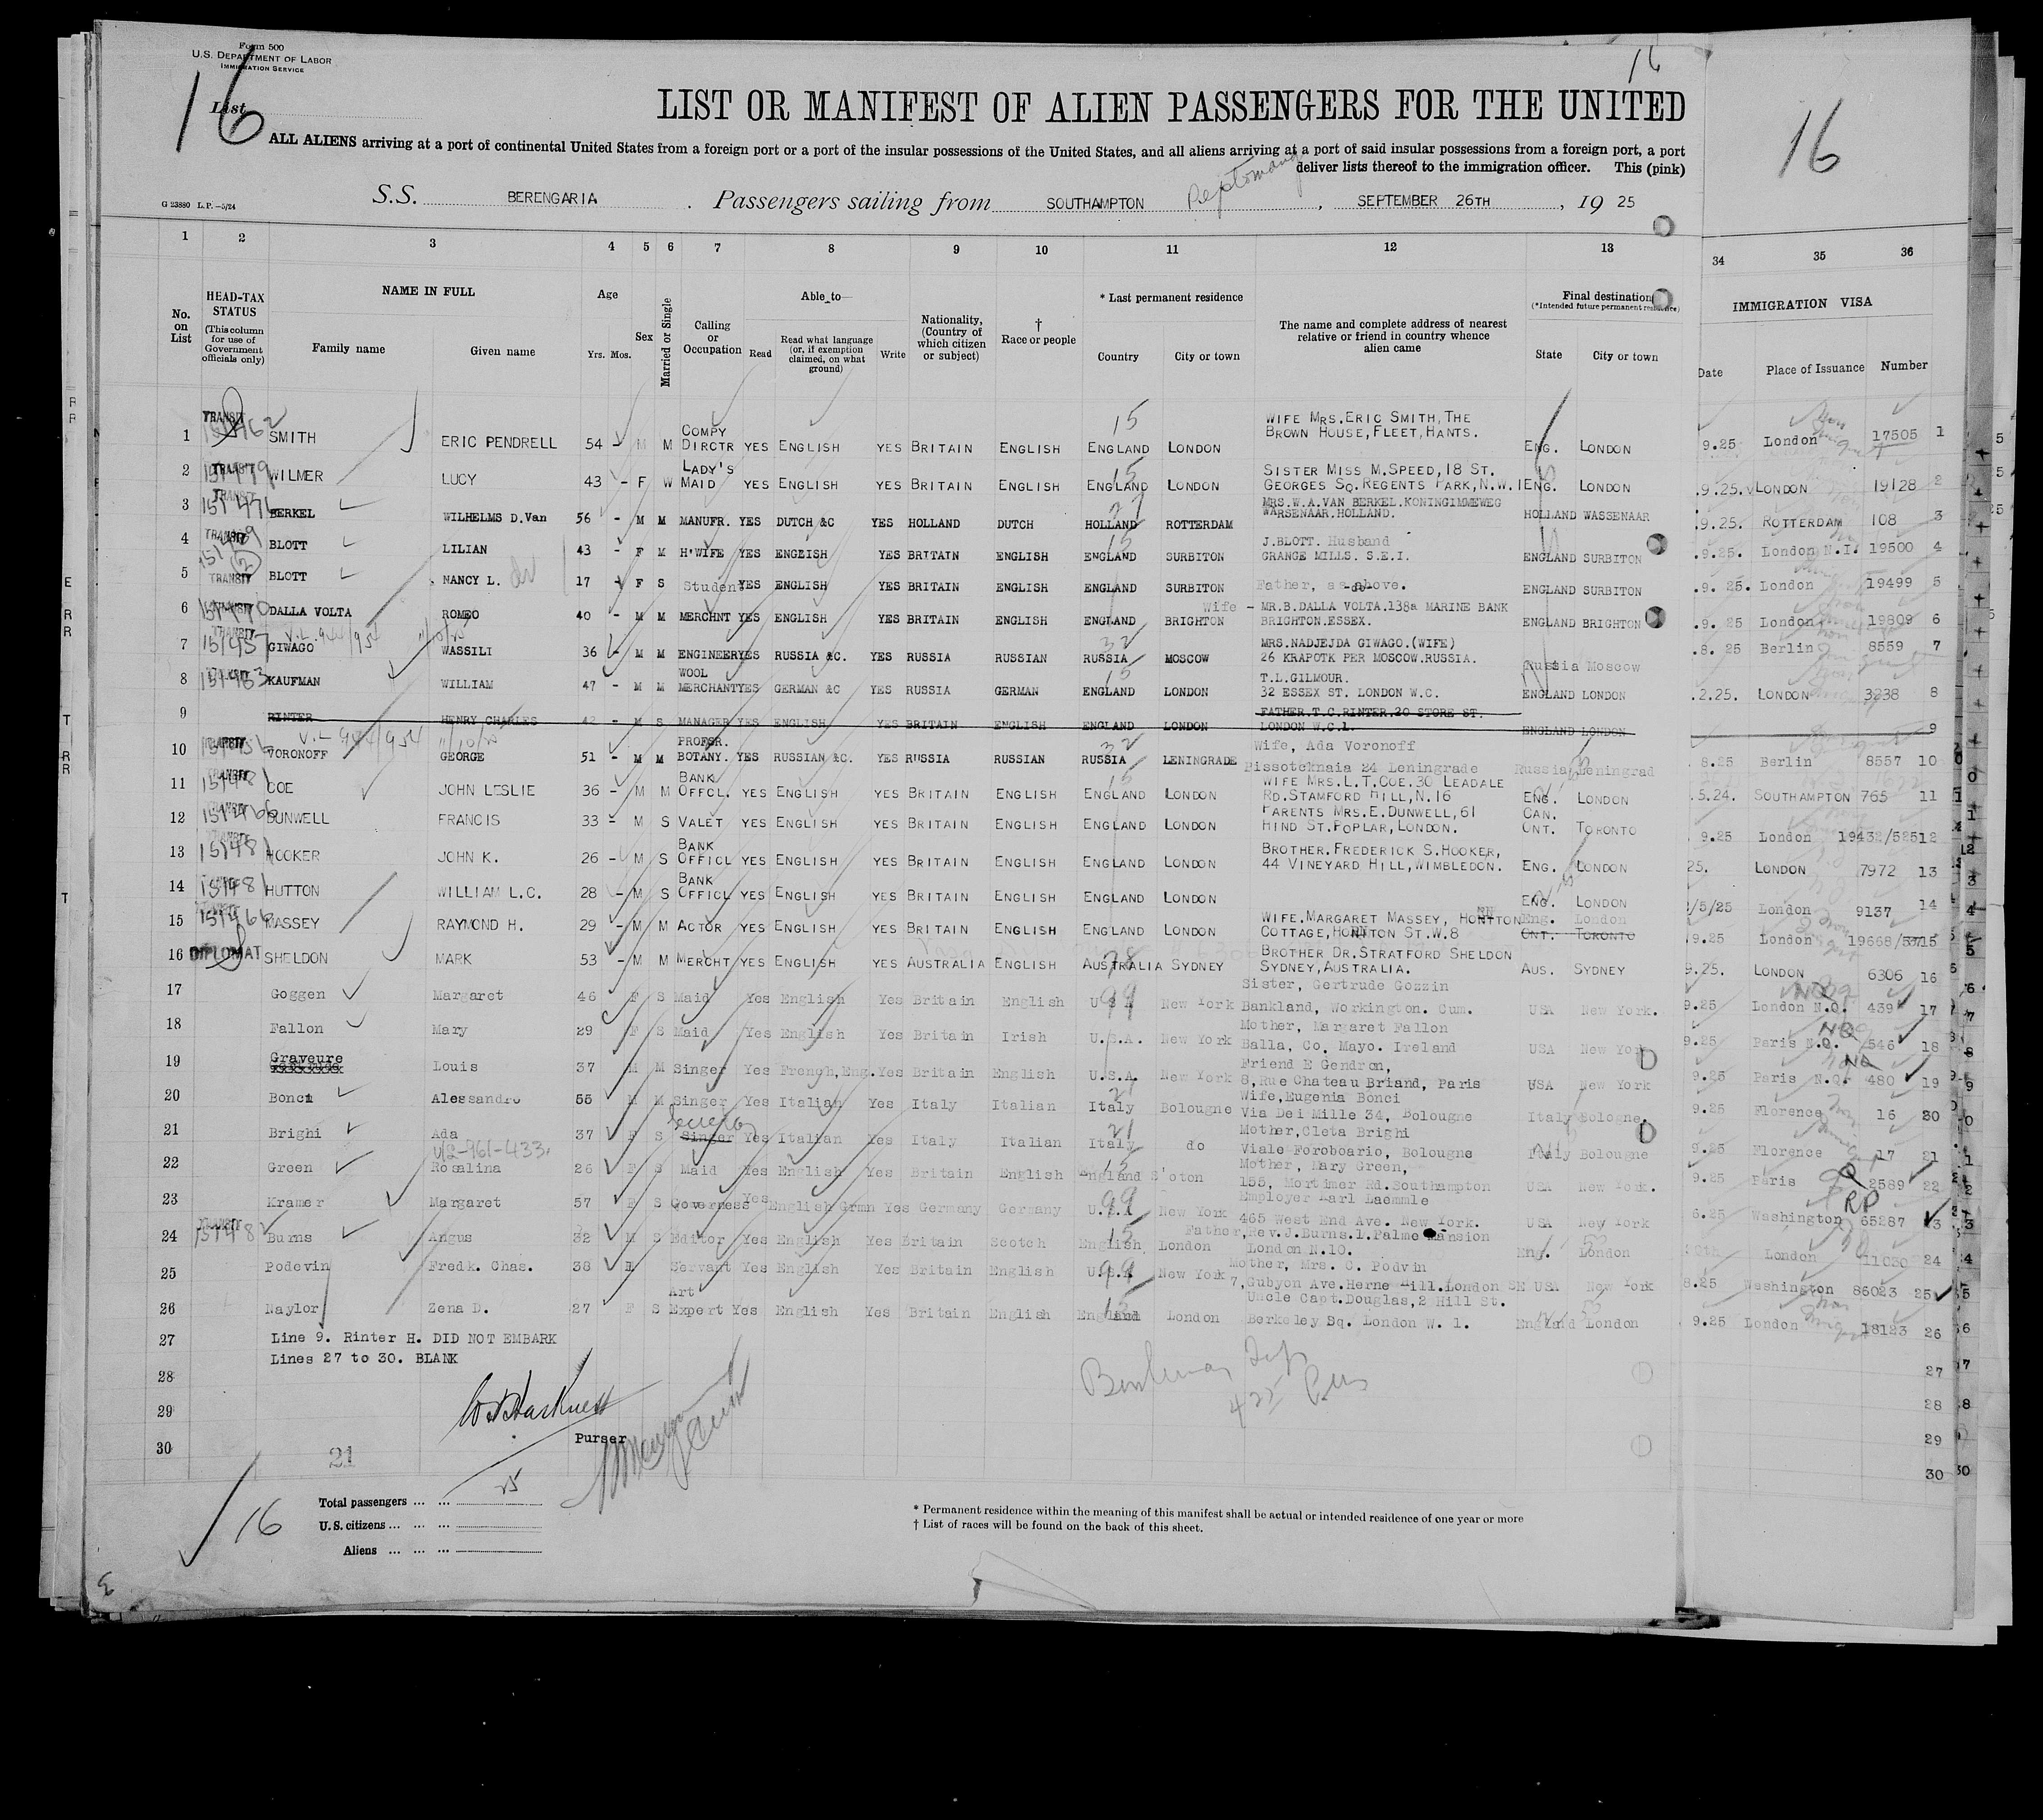 Form 500
U.S. DEPARTMENT OF LABOR
IMMIGRATION SERVICE
16
16
16
List
LIST OR MANIFEST OF ALIEN PASSENGERS FOR THE UNITED
ALL ALIENS arriving at a port of continental United States from a foreign port or a port of the insular possessions of the United States, and all aliens arriving at a port of said insular possessions from a foreign port, a port
deliver lists thereof to the immigration officer. This (pink)
G 23880 L.P.-5/24
S.S. BERENGARIA. Passengers sailing from SOUTHAMPTON, SEPTEMBER 26TH, 19 25
1 2 3 4 5 6 7 8 9 10 11 12 13 34 35 36
No. on List
HEAD-TAX STATUS (This column for use of Government officials only)
NAME IN FULL
Family name Given name
Age
Yrs. Mos.
Sex
Married or Single
Calling or Occupation
Able to—
Read Read what language (or, if exemption claimed, on what ground) Write
Nationality, (Country of which citizen or subject)
† Race or people
* Last permanent residence
Country City or town
The name and complete address of nearest relative or friend in country whence alien came
Final destination (*Intended future permanent residence)
State City or town
IMMIGRATION VISA
Date Place of Issuance Number
1 TRANSIT SMITH ERIC PENDRELL 54 - M M COMPY DIRCTR YES ENGLISH YES BRITAIN ENGLISH ENGLAND LONDON WIFE MRS.ERIC SMITH,THE BROWN HOUSE,FLEET,HANTS. ENG. LONDON 9.25 London 17505 1
2 TRANSIT WILMER LUCY 43 - F W LADY'S MAID YES ENGLISH YES BRITAIN ENGLISH ENGLAND LONDON SISTER MISS M.SPEED,18 ST. GEORGES SQ.REGENTS PARK,N.W.1 ENG. LONDON .9.25. LONDON 19128 2
3 TRANSIT BERKEL WILHELMS D.Van 56 - M M MANUFR. YES DUTCH &C YES HOLLAND DUTCH HOLLAND ROTTERDAM MRS.W.A.VAN BERKEL.KONINGIMMEWEG WARSENAAR.HOLLAND. HOLLAND WASSENAAR .9.25. ROTTERDAM 108 3
4 TRANSIT BLOTT LILIAN 43 - F M H'WIFE YES ENGLISH YES BRITAIN ENGLISH ENGLAND SURBITON J.BLOTT. Husband GRANGE MILLS. S.E.I. ENGLAND SURBITON .9.25. London N.I. 19500 4
5 TRANSIT BLOTT NANCY L. 17 F S Student YES ENGLISH YES BRITAIN ENGLISH ENGLAND SURBITON Father, as above. ENGLAND SURBITON .9. 25. London 19499 5
6 DALLA VOLTA ROMEO 40 - M M MERCHNT YES ENGLISH YES BRITAIN ENGLISH ENGLAND BRIGHTON Wife - MR.B.DALLA VOLTA.138a MARINE BANK BRIGHTON.ESSEX. ENGLAND BRIGHTON .9. 25 London 19809 6
7 TRANSIT GIWAGO WASSILI 36 - M M ENGINEER YES RUSSIA &C. YES RUSSIA RUSSIAN RUSSIA MOSCOW MRS.NADJEJDA GIWAGO.(WIFE) 26 KRAPOTK PER MOSCOW.RUSSIA. Russia Moscow .8. 25 Berlin 8559 7
8 KAUFMAN WILLIAM 47 - M M WOOL MERCHANT YES GERMAN &C YES RUSSIA GERMAN ENGLAND LONDON T.L.GILMOUR. 32 ESSEX ST. LONDON W.C. ENGLAND LONDON .2.25. LONDON 3238 8
9 RINTER HENRY CHARLES 42 - M S MANAGER YES ENGLISH YES BRITAIN ENGLISH ENGLAND LONDON FATHER.T.C.RINTER.20 STORE ST. LONDON W.C.1. ENGLAND LONDON 9
10 VORONOFF GEORGE 51 - M M PROFSR. BOTANY. YES RUSSIAN &C. YES RUSSIA RUSSIAN RUSSIA LENINGRADE Wife, Ada Voronoff Bissoteknaia 24 Leningrade Russia Leningrad 8.25 Berlin 8557 10
11 COE JOHN LESLIE 36 - M M BANK OFFCL. YES ENGLISH YES BRITAIN ENGLISH ENGLAND LONDON WIFE MRS.L.T.COE.30 LEADALE RD.STAMFORD HILL,N.16 ENG. LONDON .5.24. SOUTHAMPTON 765 11
12 DUNWELL FRANCIS 33 - M S VALET YES ENGLISH YES BRITAIN ENGLISH ENGLAND LONDON PARENTS MRS.E.DUNWELL,61 HIND ST.POPLAR,LONDON. CAN. ONT. TORONTO 9.25 London 19432/525 12
13 HOOKER JOHN K. 26 - M S BANK OFFICL YES ENGLISH YES BRITAIN ENGLISH ENGLAND LONDON BROTHER.FREDERICK S.HOOKER, 44 VINEYARD HILL,WIMBLEDON. ENG. LONDON 25. LONDON 7972 13
14 HUTTON WILLIAM L.C. 28 - M S BANK OFFICL YES ENGLISH YES BRITAIN ENGLISH ENGLAND LONDON ENG. LONDON 2/5/25 London 9137 14
15 MASSEY RAYMOND H. 29 - M M ACTOR YES ENGLISH YES BRITAIN ENGLISH ENGLAND LONDON WIFE.MARGARET MASSEY, HORNTON COTTAGE,HORNTON ST.W.8 Eng. London ONT. TORONTO 9.25 London 19668/537 15
16 DIPLOMAT SHELDON MARK 53 - M M MERCHT YES ENGLISH YES AUSTRALIA ENGLISH AUSTRALIA SYDNEY BROTHER DR.STRATFORD SHELDON SYDNEY,AUSTRALIA. AUS. SYDNEY 9.25. LONDON 6306 16
17 Goggen Margaret 46 F S Maid Yes English Yes Britain English U S A New York Sister, Gertrude Gozzin Bankland, Workington. Cum. USA New York. 9.25 London N.Q. 439 17
18 Fallon Mary 29 F S Maid Yes English Yes Britain Irish U.S.A. New York Mother, Margaret Fallon Balla, Co. Mayo. Ireland USA New York 9.25 Paris N.Q. 546 18
19 Graveure Louis 37 M M Singer Yes French,Eng. Yes Britain English U.S.A. New York Friend E Gendron, 8,Rue Chateau Briand, Paris USA New York 9.25 Paris N.Q. 480 19
20 Bonci Alessandro 55 M M Singer Yes Italian Yes Italy Italian Italy Bolougne Wife,Eugenia Bonci Via Dei Mille 34, Bolougne Italy Bologne. 9.25 Florence 16 20
21 Brighi Ada 37 F S Singer Yes Italian Yes Italy Italian Italy do Mother,Cleta Brighi Viale Foroboario, Bolougne Italy Bolougne 9.25 Florence 17 21
22 Green Rosalina 26 F S Maid Yes English Yes Britain English England S'oton Mother, Mary Green, 155, Mortimer Rd.Southampton USA New York. 9.25 Paris 2589 22
23 Kramer Margaret 57 F S Governess Yes English Grmn Yes Germany Germany U.S.A New York Employer Karl Laemmle 465 West End Ave. New York. USA New York 6.25 Washington 65287 23
24 TRANSIT Burns Angus 32 M S Editor Yes English Yes Britain Scotch English London Father,Rev.J.Burns.1.Palme Mansion London N.10. Eng. London London 11030 24
25 Podevin Fredk. Chas. 38 M Servant Yes English Yes Britain English U.S.A New York Mother, Mrs. C. Podvin 7,Gubyon Ave.Herne Hill.London SE USA New York 8.25 Washington 86023 25
26 Naylor Zena D. 27 F S Art Expert Yes English Yes Britain English England London Uncle Capt.Douglas,2 Hill St. Berkeley Sq. London W. 1. England London 9.25 London 18123 26
27 Line 9. Rinter H. DID NOT EMBARK 27
Lines 27 to 30. BLANK
28 28
29 29
30 Purser 30
21
16
Total passengers ... ... 25
U.S. citizens ... ... ...
Aliens ... ... ...
* Permanent residence within the meaning of this manifest shall be actual or intended residence of one year or more
† List of races will be found on the back of this sheet.